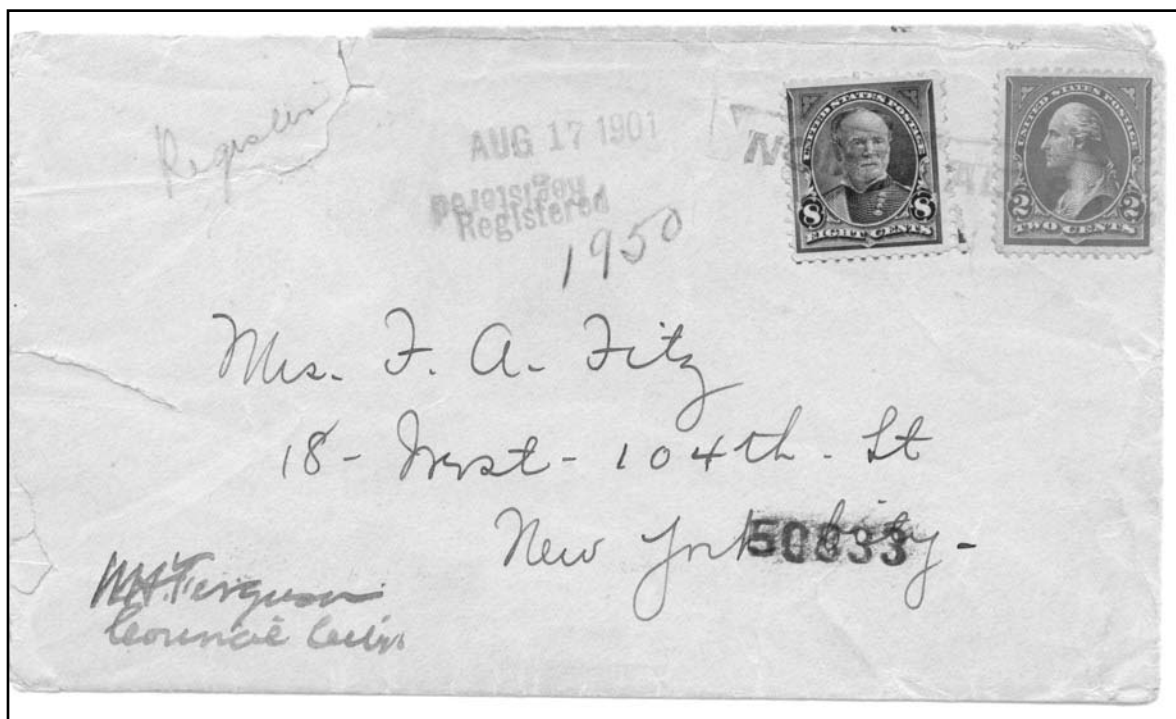 Register
AUG 17 1901
Registered
Registered
1950
UNITED STATES POSTAGE
8 8
EIGHT CENTS
UNITED STATES POSTAGE
2 2
TWO CENTS
Mrs. F. A. Fitz
18- West- 104th. St
New York City-
50833
Ferguson
Council